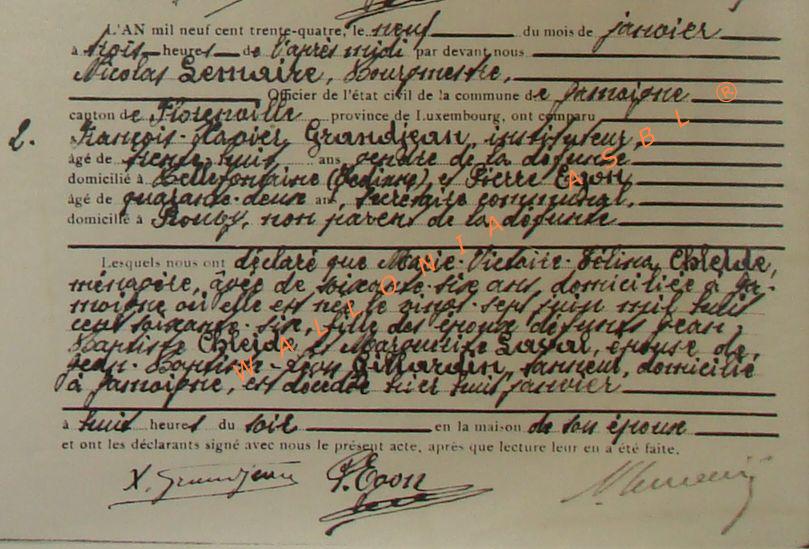 L'AN mil neuf cent trente-quatre, le neuf du mois de janvier
à trois heures de l'après midi par devant nous
Nicolas Lemaire, Bourgmestre,
Officier de l'état civil de la commune de Jamoigne
canton de Florenville province de Luxembourg, ont comparu
2. François-Xavier Grandjean, instituteur,
âgé de trente-huit ans, gendre de la défunte
domicilié à Bellefontaine et Pierre Evon,
âgé de quarante-deux ans, secrétaire communal,
domicilié à non parent de la défunte
Lesquels nous ont déclaré que Marie-Victoire-Félina Chleide,
ménagère, âgée de soixante-six ans domiciliée à Ja-
moigne où elle est née le vingt-sept juin mil huit
cent soixante-six, fille des époux défunts Jean
Baptiste Chleide et Marguerite Laval, épouse de
Jean-Baptiste-Léon Gillardin, tanneur, domicilié
à Jamoigne, est décédée hier huit janvier
à huit heures du soir en la maison de son épouse
et ont les déclarants signé avec nous le présent acte, après que lecture leur en a été faite.
X. Grandjean P. Evon
WALLONIA ASBL ®